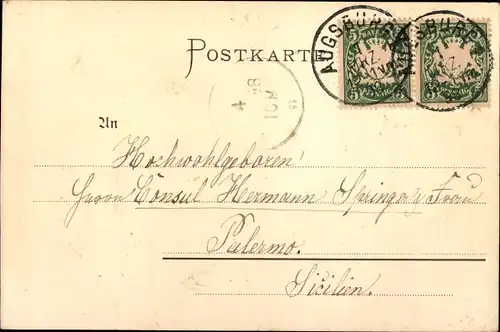 POSTKARTE
AUGSBURG
AUGSBURG
An
Hochwohlgeboren
Herrn Consul Hermann Springer & Frau
Palermo.
Sicilien.